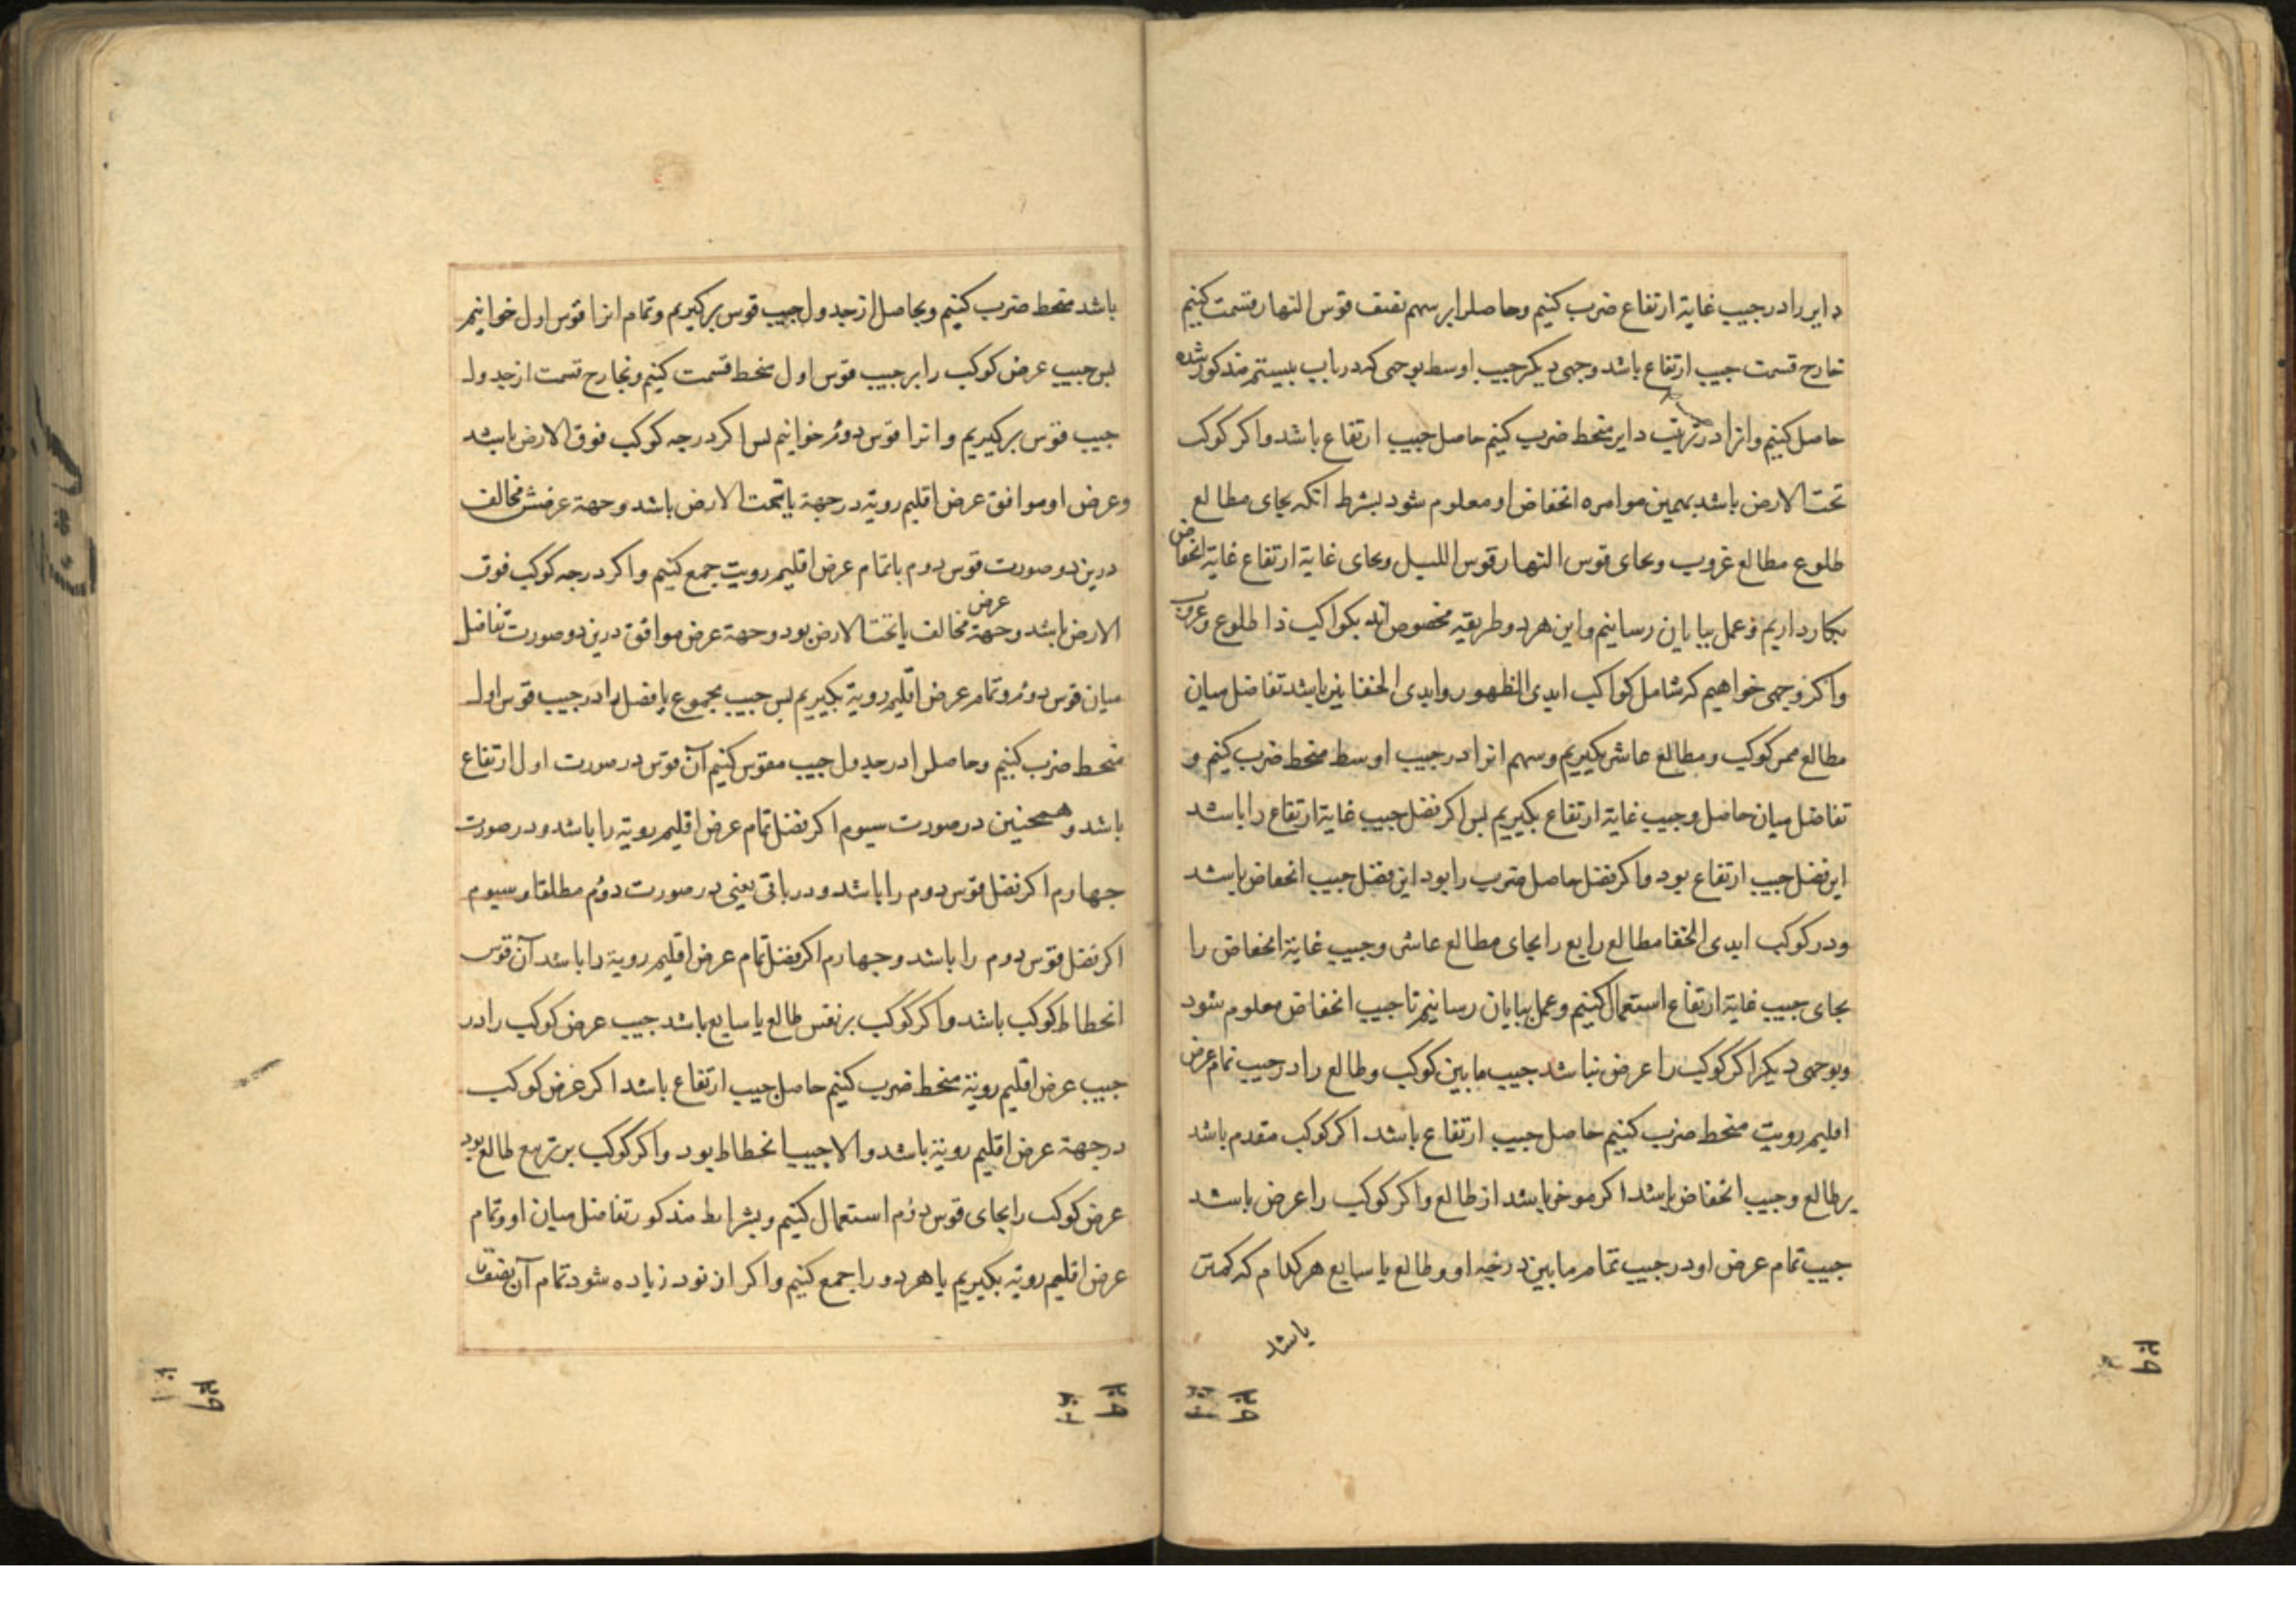 دایر را در جیب غایة ارتفاع ضرب کنیم و حاصل را بر سهم نصف قوس النهار قسمت کنیم
خارج قسمت جیب ارتفاع باشد وجهی دیکر جیب اوسط بوجهی که در باب بیستم مذکور شده
حاصل کنیم و انرا در ترتیب دایر منحط ضرب کنیم حاصل جیب ارتفاع باشد و اکر کوکب
تحت الارض باشد بهمین موامره انخفاض او معلوم شود بشرط انکه بجای مطالع
طلوع مطالع غروب و بجای قوس النهار قوس اللیل و بجای غایة ارتفاع غایة انخفاض
بکار داریم و عمل بپایان رسانیم و این هر دو طریقه مخصوص اند بکواکب ذا طلوع و غروب
و اکر وجهی خواهیم که شامل کواکب ابدی الظهور و ابدی الخفا نیز باشد تفاضل میان
مطالع ممر کوکب و مطالع عاشر بکیریم و سهم انرا در جیب اوسط منحط ضرب کنیم و
تفاضل میان حاصل و جیب غایة ارتفاع بکیریم پس اکر فضل جیب غایة ارتفاع را باشد
این فضل جیب ارتفاع بود و اکر فضل حاصل ضرب را بود این فضل جیب انخفاض باشد
و در کوکب ابدی الخفا مطالع رابع را بجای مطالع عاشر و جیب غایة انخفاض را
بجای جیب غایة ارتفاع استعمال کنیم و عمل بپایان رسانیم تا جیب انخفاض معلوم شود
و بوجهی دیکر اکر کوکب را عرض نباشد جیب مابین کوکب و طالع را در جیب تمام عرض
اقلیم رویت منحط ضرب کنیم حاصل جیب ارتفاع باشد اکر کوکب مقدم باشد
بر طالع و جیب انخفاض باشد اکر موخر باشد از طالع و اکر کوکب را عرض باشد
جیب تمام عرض او در جیب تمام مابین درجه او و طالع یا سابع هر کدام که کمتر
باشد
باشد منحط ضرب کنیم و بحاصل از جدول جیب قوس برکیریم و تمام انرا قوس اول خوانیم
پس جیب عرض کوکب را بر جیب قوس اول منحط قسمت کنیم و بخارج قسمت از جدول
جیب قوس برکیریم و انرا قوس دوم خوانیم پس اکر درجه کوکب فوق الارض باشد
و عرض او موافق عرض اقلیم رویة در جهة یا تحت الارض باشد و جهة عرضش مخالف
درین دو صورت قوس دوم با تمام عرض اقلیم رویت جمع کنیم و اکر درجه کوکب فوق
الارض باشد و جهة عرض مخالف یا تحت الارض بود و جهة عرض موافق درین دو صورت تفاضل
میان قوس دوم و تمام عرض اقلیم رویة بکیریم پس جیب مجموع یا فضل را در جیب قوس اول
منحط ضرب کنیم و حاصل را در جدول جیب مقوس کنیم آن قوس در صورت اول ارتفاع
باشد و همچنین در صورت سیوم اکر فضل تمام عرض اقلیم رویة را باشد و در صورت
چهارم اکر فضل قوس دوم را باشد و در باقی یعنی در صورت دوم مطلقا و سیوم
اکر فضل قوس دوم را باشد و چهارم اکر فضل تمام عرض اقلیم رویة را باشد آن قوس
انحطاط کوکب باشد و اکر کوکب بر نفس طالع یا سابع باشد جیب عرض کوکب را در
جیب عرض اقلیم رویة منحط ضرب کنیم حاصل جیب ارتفاع باشد اکر عرض کوکب
در جهة عرض اقلیم رویة باشد و الا جیب انحطاط بود و اکر کوکب بر تربیع طالع بود
عرض کوکب را بجای قوس دوم استعمال کنیم و بشرایط مذکور تفاضل میان او و تمام
عرض اقلیم رویة بکیریم یا هر دو را جمع کنیم و اکر از نود زیاده شود تمام آن نصف